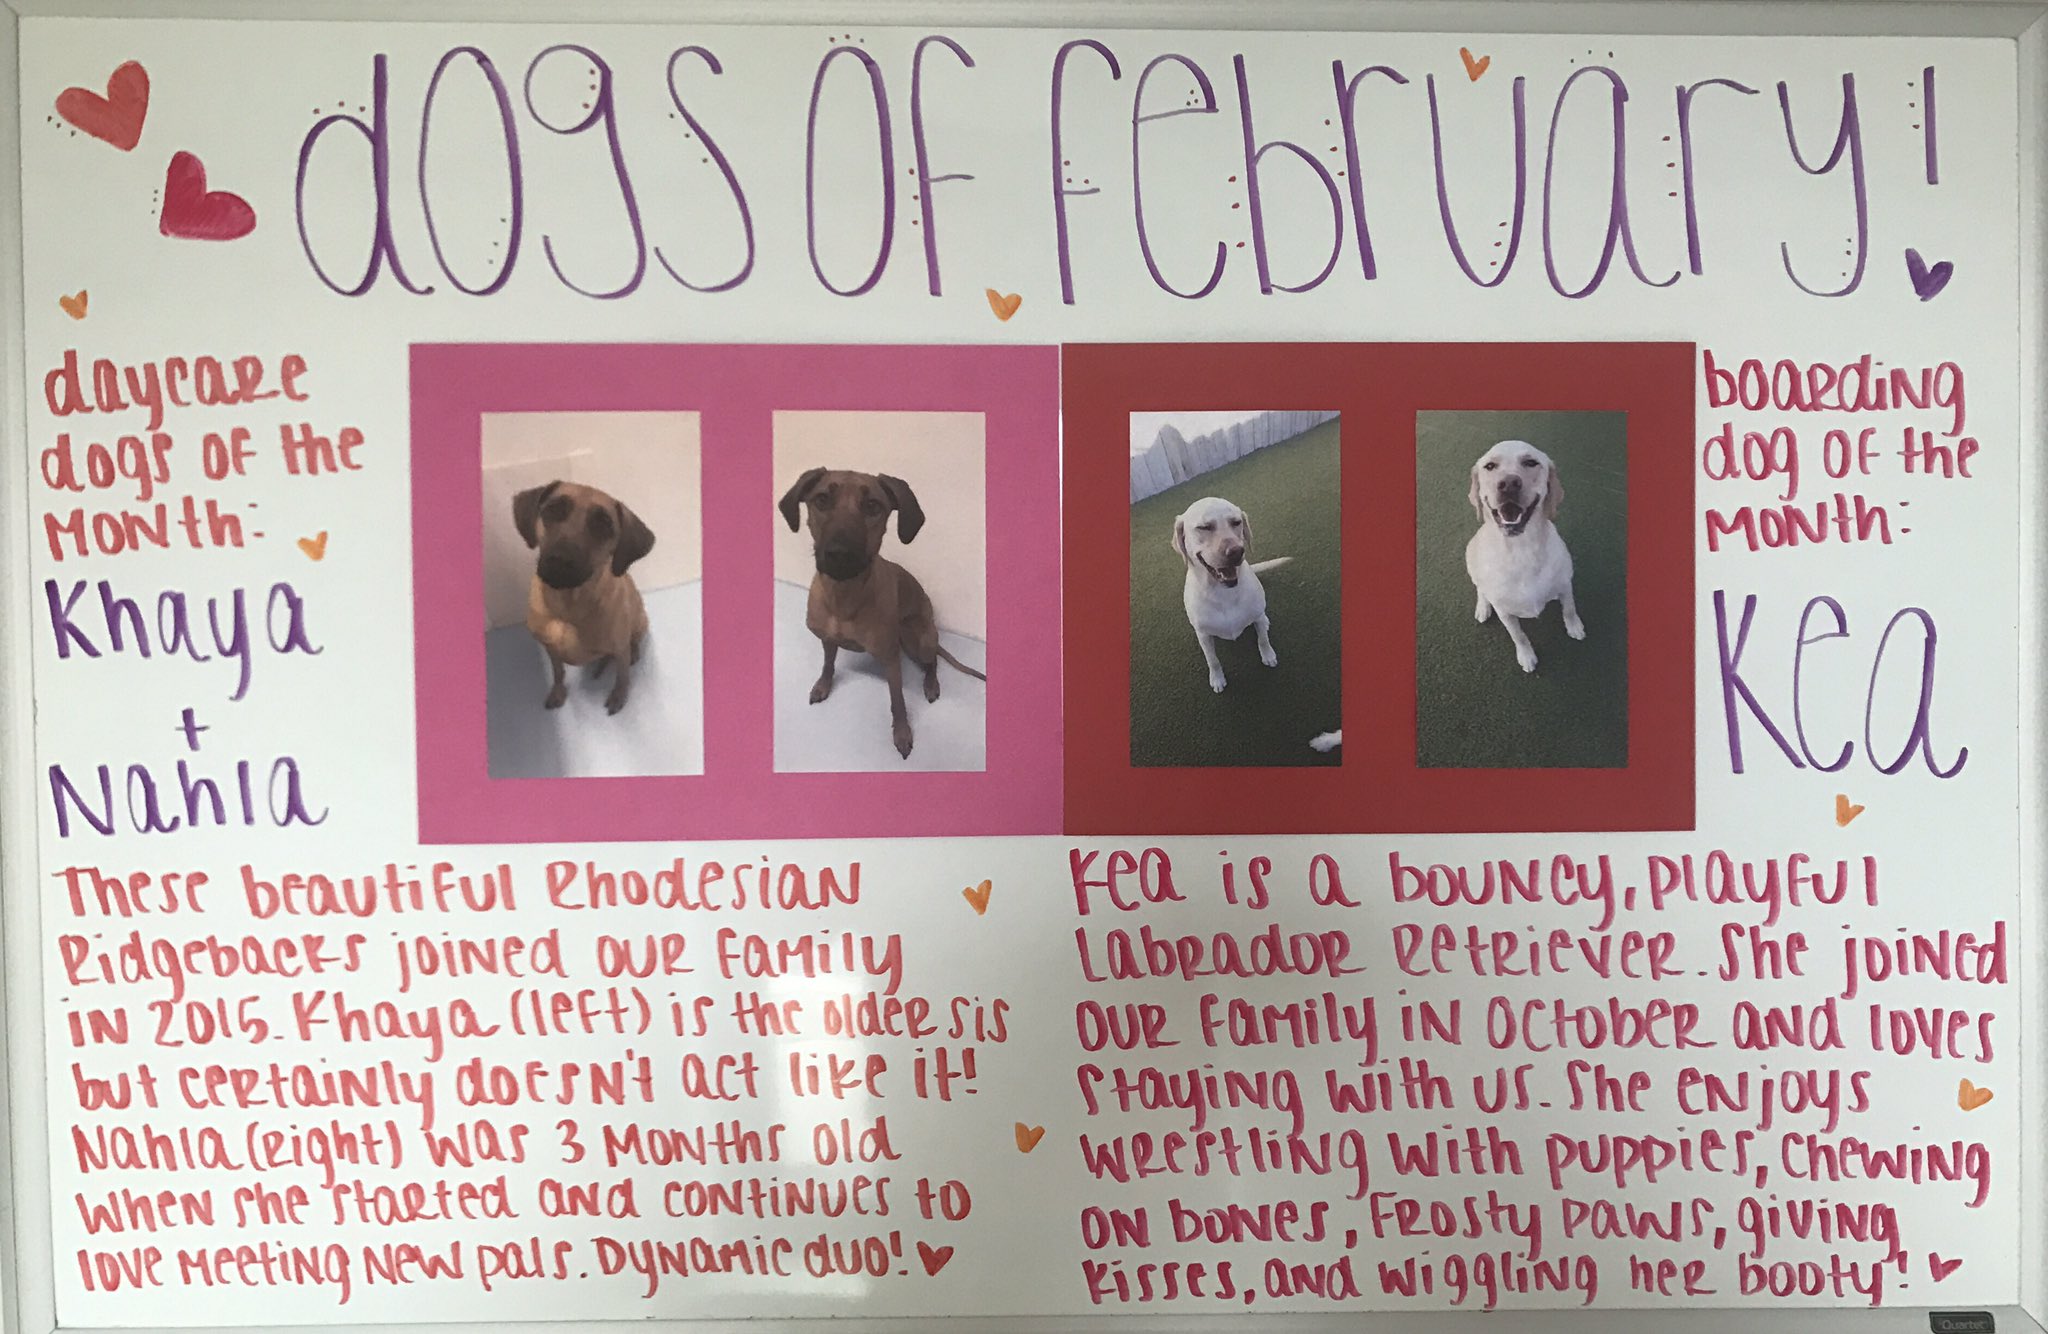 dogs of february!
daycare
dogs of the
month:
Khaya
+
Nahla
boarding
dog of the
month:
Kea
These beautiful Rhodesian
Ridgebacks joined our family
in 2015. Khaya (left) is the older sis
but certainly doesn't act like it!
Nahla (right) was 3 months old
when she started and continues to
love meeting new pals. Dynamic duo!
Kea is a bouncy, playful
Labrador Retriever. She joined
our family in October and loves
staying with us. She enjoys
wrestling with puppies, chewing
on bones, Frosty Paws, giving
kisses, and wiggling her booty!
Quartet